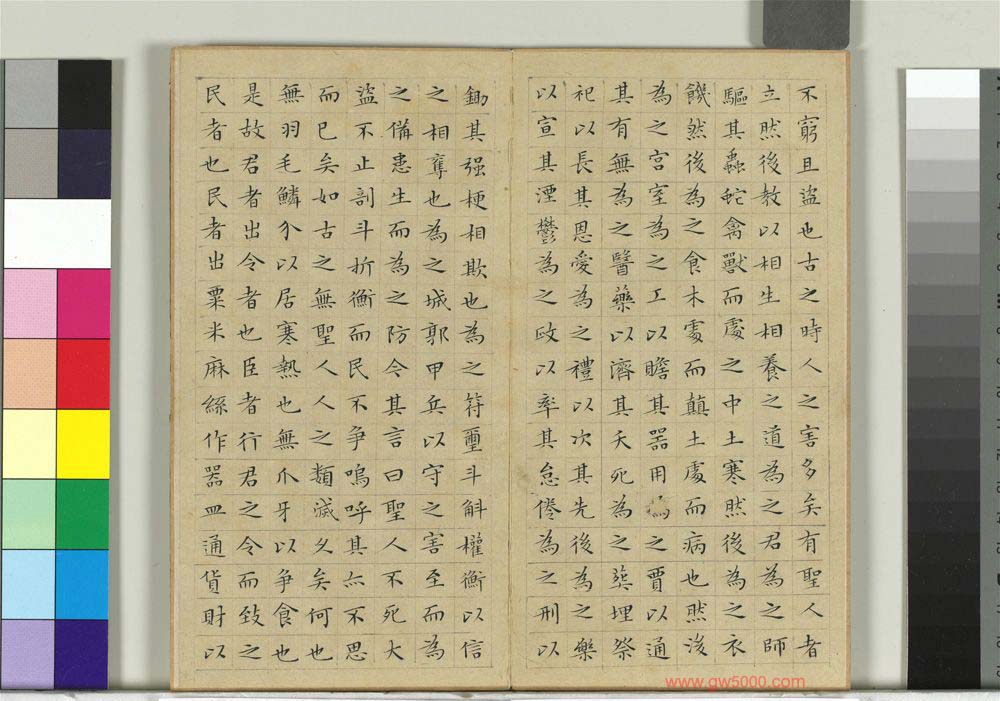 不窮且盜也古之時人之害多矣有聖人者
立然後教以相生相養之道為之君為之師
驅其蟲蛇禽獸而處之中土寒然後為之衣
饑然後為之食木處而顛土處而病也然後
為之宮室為之工以贍其器用為之賈以通
其有無為之醫藥以濟其夭死為之葬埋祭
祀以長其恩愛為之禮以次其先後為之樂
以宣其湮鬱為之政以率其怠倦為之刑以
鋤其强梗相欺也為之符璽斗斛權衡以信
之相奪也為之城郭甲兵以守之害至而為
之備患生而為之防今其言曰聖人不死大
盜不止剖斗折衡而民不争嗚呼其亦不思
而已矣如古之無聖人人之類滅久矣何也
無羽毛鱗介以居寒熱也無爪牙以争食也
是故君者出令者也臣者行君之令而致之
民者也民者出粟米麻絲作器皿通貨財以
www.gw5000.com